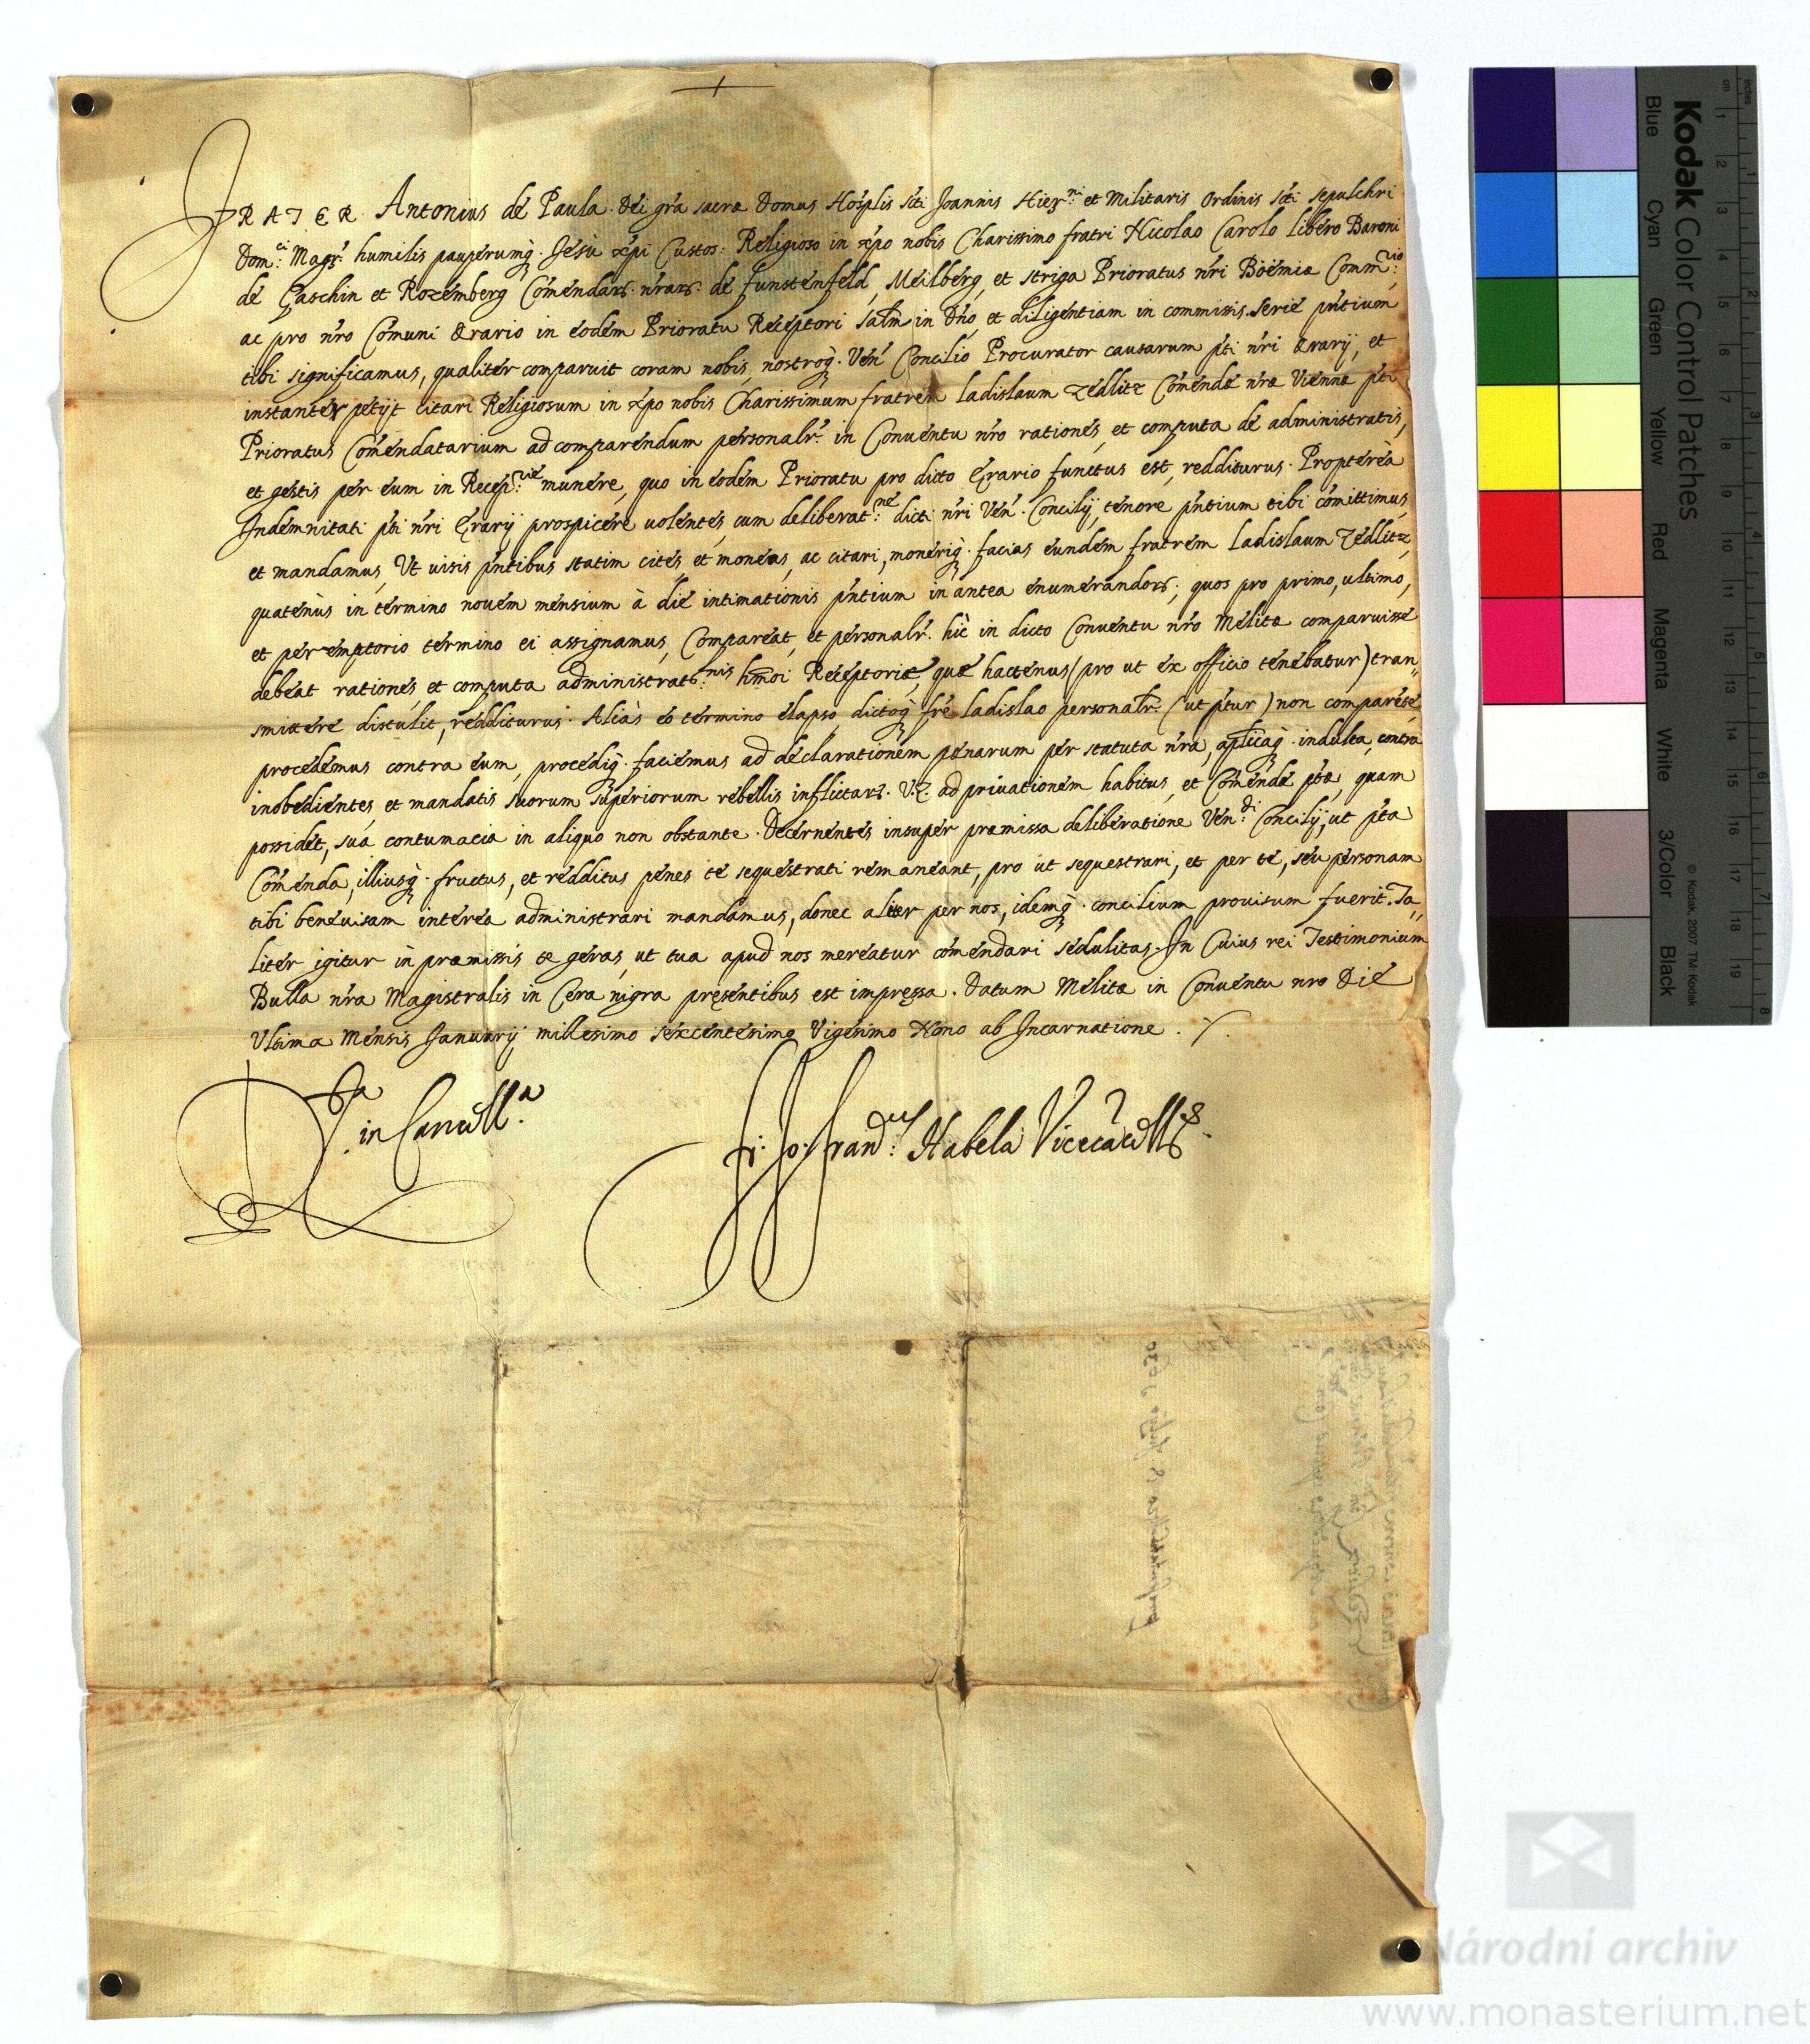 FRATER Antonius de Paula Dei gra sacræ Domus Hosplis sti Joannis Hier.ni et Militaris Ordinis sti sepulchri
Dom.ci Magr. humilis pauperumq. Jesu xpi Custos: Religioso in xpo nobis Charissimo fratri Nicolao Carolo Libero Baroni
de Gaschin et Rozemberg Comendarz. nrarz. de funstenfeld, Meilberg, et striga Prioratus nri Boemiæ Comm.rio:
ac pro nro Comuni Ærario in eodem Prioratu Receptori salm in Dno, et diligentiam in commissis. Serie pntium
tibi significamus, qualiter comparuit coram nobis, nostroq. Ven. Concilio Procurator causarum pti nri Ærarij, et
instanter petijt citari Religiosum in xpo nobis Charissimum fratrem Ladislaum Zedlitz Comendæ nræ Viennæ pti
Prioratus Comendatarium ad comparendum personalr. in Conventu nro rationes, et computa de administratis,
et gestis per eum in Recep.riæ munere, quo in eodem Prioratu pro dicto Erario functus est, redditurus. Propterea
Indemnitati pti nri Erarij prospicere uolentes, cum deliberat.ne dicti nri Ven. Concilij, tenore pntium tibi comittimus,
et mandamus, Ut uisis pntibus statim cites et moneas, ac citari, moneriq. facias eundem fratrem Ladislaum Zedlitz,
quatenùs in termino nouem mensium à die intimationis pntium in antea enumerandorz, quos pro primo, ultimo,
et peremptorio termino ei assignamus, Compareat, et personalr. hic in dicto Conuentu nro Melitæ comparuisse
debeat rationes et computa administrat.nis hmoi Receptoriæ, quæ hactenus (pro ut ex officio tenebatur) tran„
smittere distulit, redditurus. Aliàs eo termino elapso, dictoq. fre Ladislao personalr. (ut ptur) non comparese,
procedemus contra eum, procediq. faciemus ad declarationem pænarum per statuta nra, aplicaq. indulta, contra
inobedientes, et mandatis suorum superiorum rebelles inflictarz. V.Z. ad priuationem habitus, et Comendæ ptæ, quam
possidet, sua contumacia in aliquo non obstante. Decernentes insuper præmissa deliberatione Ven.di Concilij, ut pta
Comenda, illiusq. fructus, et redditus penes te sequestrati remaneant, pro ut sequestrari, et per te, seu personam
tibi beneuisam interea administrari mandamus, donec aliter per nos, idemq. concilium prouisum fuerit. Ta„
liter igitur in præmissis te geras, ut tua apud nos mereatur comendari sedulitas. In Cuius rei Testimonium
Bulla nra Magistralis in Cera nigra pręsentibus est impręssa. Datum Melitæ in Conuentu nro Die
Ultima Mensis Januarij millesimo sexcentesimo Vigesimo Nono ab Incarnatione.
Rta in Cancell.a
fr. Jo. Franc.us Habela Vicecancell.s
Kodak Color Control Patches
Blue Cyan Green Yellow Red Magenta White 3/Color Black
© Kodak, 2007 TM: Kodak
Národní archiv
www.monasterium.net